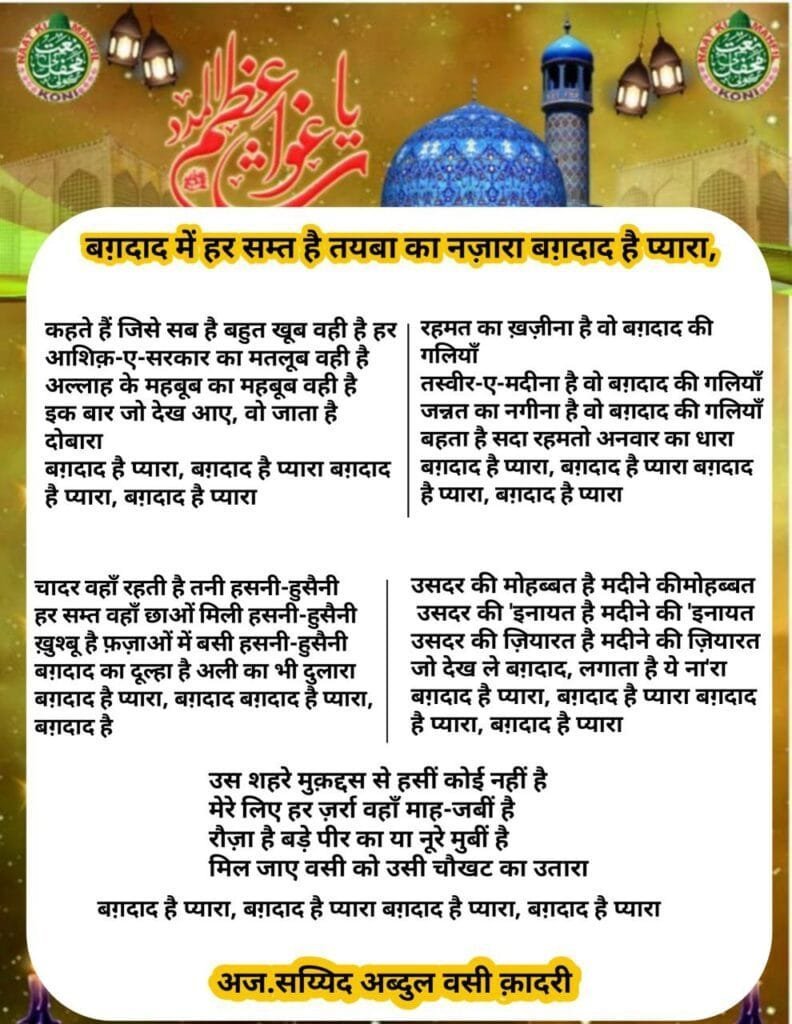 NAAT KI MAHFIL
KONI
یا غوث اعظم المدد
NAAT KI MAHFIL
KONI
बग़दाद में हर सम्त है तयबा का नज़ारा बग़दाद है प्यारा,
कहते हैं जिसे सब है बहुत खूब वही है हर
आशिक़-ए-सरकार का मतलूब वही है
अल्लाह के महबूब का महबूब वही है
इक बार जो देख आए, वो जाता है
दोबारा
बग़दाद है प्यारा, बग़दाद है प्यारा बग़दाद
है प्यारा, बग़दाद है प्यारा
रहमत का ख़ज़ीना है वो बग़दाद की
गलियाँ
तस्वीर-ए-मदीना है वो बग़दाद की गलियाँ
जन्नत का नगीना है वो बग़दाद की गलियाँ
बहता है सदा रहमतो अनवार का धारा
बग़दाद है प्यारा, बग़दाद है प्यारा बग़दाद
है प्यारा, बग़दाद है प्यारा
चादर वहाँ रहती है तनी हसनी-हुसैनी
हर सम्त वहाँ छाओं मिली हसनी-हुसैनी
ख़ुश्बू है फ़ज़ाओं में बसी हसनी-हुसैनी
बग़दाद का दूल्हा है अली का भी दुलारा
बग़दाद है प्यारा, बग़दाद बग़दाद है प्यारा,
बग़दाद है
उसदर की मोहब्बत है मदीने कीमोहब्बत
उसदर की 'इनायत है मदीने की 'इनायत
उसदर की ज़ियारत है मदीने की ज़ियारत
जो देख ले बग़दाद, लगाता है ये ना'रा
बग़दाद है प्यारा, बग़दाद है प्यारा बग़दाद
है प्यारा, बग़दाद है प्यारा
उस शहरे मुक़द्दस से हसीं कोई नहीं है
मेरे लिए हर ज़र्रा वहाँ माह-जबीं है
रौज़ा है बड़े पीर का या नूरे मुबीं है
मिल जाए वसी को उसी चौखट का उतारा
बग़दाद है प्यारा, बग़दाद है प्यारा बग़दाद है प्यारा, बग़दाद है प्यारा
अज.सय्यिद अब्दुल वसी क़ादरी